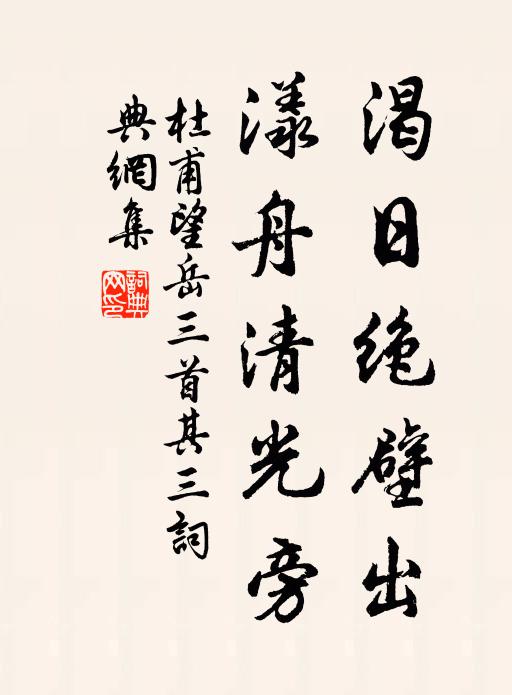 渴日绝壁出
漾舟清光旁
杜甫望岳三首其三詞
典網集
詞典
网印